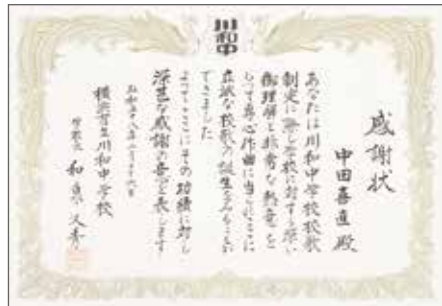 川和中
感謝状
中田喜直殿
あなたは川和中学校校歌
制定に際し学校に対する深い
御理解と非常な熱意を
もって専心作曲に当たりここに
立派な校歌の誕生をみることが
できました
よってここにその功績に対し
深甚な感謝の意を表します
昭和五十八年二月二十六日
横浜市立川和中学校
学校長 和泉久秀